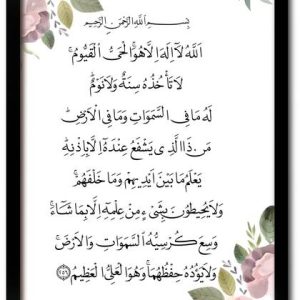 بِسْمِ اللَّهِ الرَّحْمَنِ الرَّحِيمِ
اللَّهُ لَا إِلَهَ إِلَّا هُوَ الْحَيُّ الْقَيُّومُ
لَا تَأْخُذُهُ سِنَةٌ وَلَا نَوْمٌ
لَهُ مَا فِي السَّمَوَاتِ وَمَا فِي الْأَرْضِ
مَن ذَا الَّذِي يَشْفَعُ عِندَهُ إِلَّا بِإِذْنِهِ
يَعْلَمُ مَا بَيْنَ أَيْدِيهِمْ وَمَا خَلْفَهُمْ
وَلَا يُحِيطُونَ بِشَيْءٍ مِنْ عِلْمِهِ إِلَّا بِمَا شَاءَ
وَسِعَ كُرْسِيُّهُ السَّمَوَاتِ وَالْأَرْضَ
وَلَا يَئُودُهُ حِفْظُهُمَا وَهُوَ الْعَلِيُّ الْعَظِيمُ